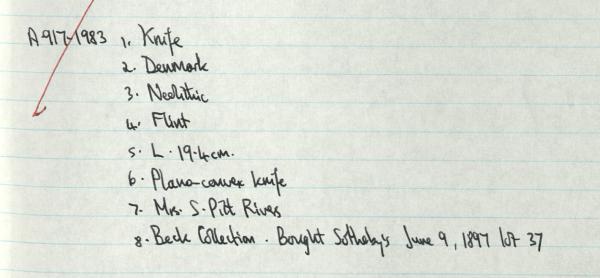 A917-1983 1. Knife
2. Denmark
3. Neolithic
4. Flint
5. L. 19.4cm.
6. Plano-convex knife
7. Mrs. S. Pitt Rivers
8. Beck Collection. Bought Sotheby's June 9, 1897 lot 37